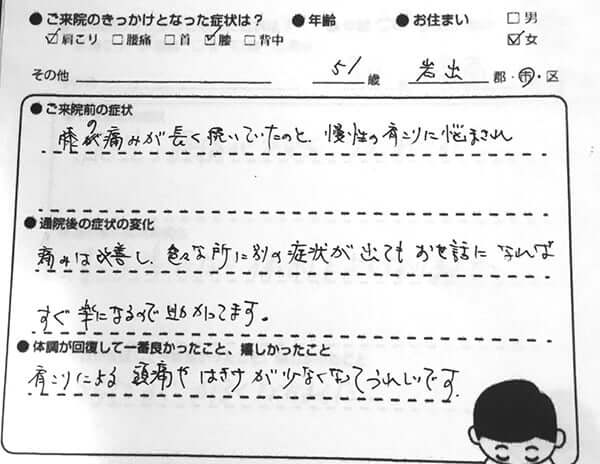 ●ご来院のきっかけとなった症状は? ●年齢 ●お住まい □男
☑肩こり □腰痛 □首 ☑腰 □背中 ☑女
その他 51歳 岩出 郡・市・区
●ご来院前の症状
膝の痛みが長く続いていたのと、慢性の肩こりに悩まされ
●通院後の症状の変化
痛みは改善し、色々な所に別の症状が出てもお世話になれば
すぐ楽になるので助かってます。
●体調が回復して一番良かったこと、嬉しかったこと
肩こりによる頭痛やはきけが少なくなってうれしいです。